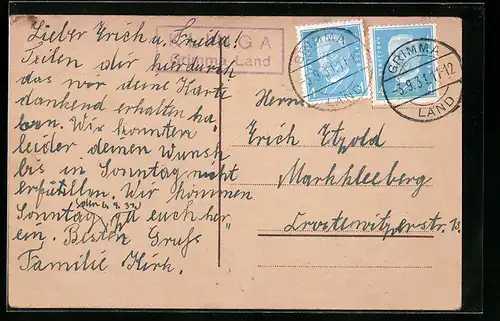 Lieber Erich u. Frieda!
Teilen dir hierdurch
das wir deine Karte
dankend erhalten ha-
ben. Wir konnten
leider deinen Wunsch
bis in Sonntag nicht
erfüllen. Wir kommen
(den 6. 9. 31)
Sonntag zu euch her-
ein. Besten Gruß
Familie Kirh.
GA
Grimma Land
GRIMMA
5.9.31. 11-12
LAND
GRIMMA
5.9.31. 11-12
LAND
Herrn
Erich Etzold
Markkleeberg
13.